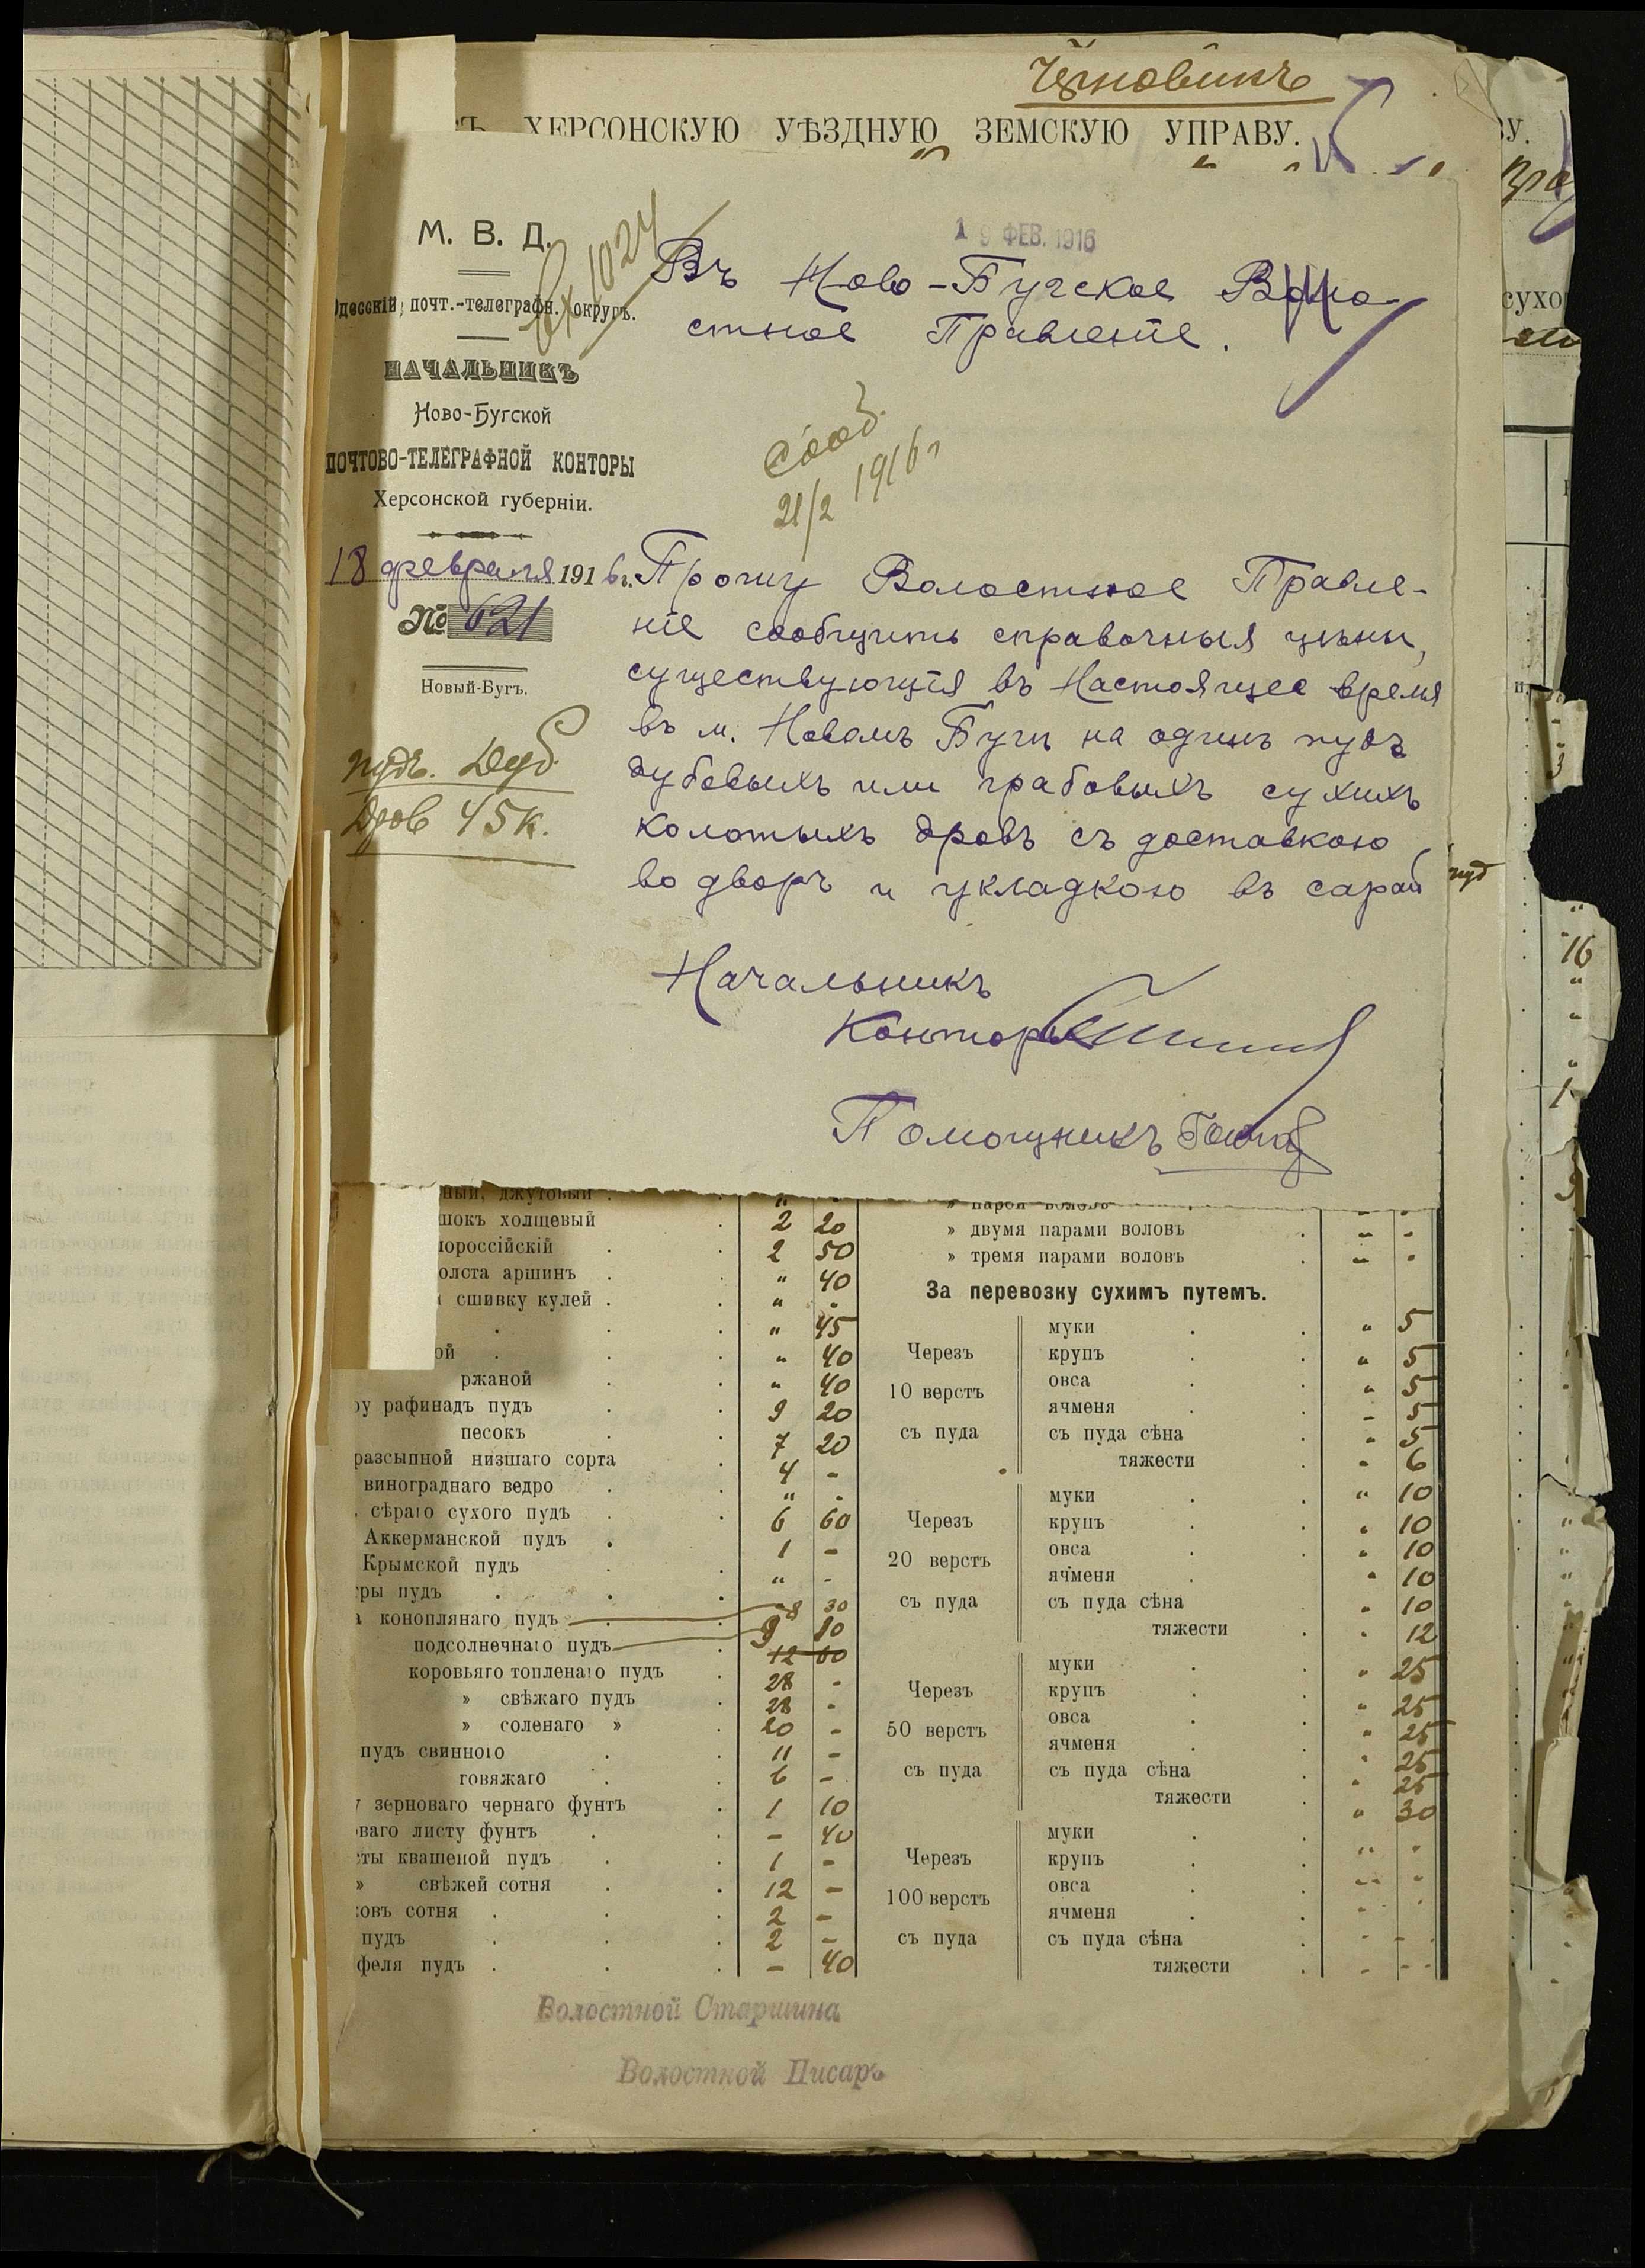 Черновикъ
ХЕРСОНСКУЮ УѢЗДНУЮ ЗЕМСКУЮ УПРАВУ.
М. В. Д.
Вх 1024
Одесскій почт.-телеграфн. округъ.
НАЧАЛЬНИКЪ
Ново-Бугской
ПОЧТОВО-ТЕЛЕГРАФНОЙ КОНТОРЫ
Херсонской губерніи.
18 февраля 1916 г.
№ 621
Новый-Бугъ.
пудъ. Дуб.
Дров 45 к.
19 ФЕВ. 1916
Въ Ново-Бугское Воло-
стное Правленіе.
Сооб.
21/2 1916 г
Прошу Волостное Правле-
ніе сообщить справочныя цѣны,
существующія въ Настоящее время
въ м. Новомъ Бугѣ на одинъ пудъ
дубовыхъ или грабовыхъ сухихъ
колотыхъ дровъ съ доставкою
во дворъ и укладкою въ сарай
пуд
Начальникъ
Конторы
Помощникъ
ный, джутовый . " -
шокъ холщевый . 2 20
лороссійскій . . 2 50
олста аршинъ . . " 40
сшивку кулей . . " -
. . . " 45
ой . . . " 40
ржаной . . " 40
ру рафинадъ пудъ . . 9 20
песокъ . . 7 20
разсыпной низшаго сорта . 4 -
винограднаго ведро . . " -
сѣраго сухого пудъ . . 6 60
Аккерманской пудъ . 1 -
Крымской пудъ . . " -
ры пудъ . . . 8 30
коноплянаго пудъ . . 9 80
подсолнечнаго пудъ . 12 60
коровьяго топленаго пудъ . 28 -
» свѣжаго пудъ . 28 -
» соленаго » . 20 -
пудъ свинного . . 11 -
говяжаго . . 6 -
зерноваго чернаго фунтъ . 1 10
ваго листу фунтъ . . - 40
сты квашеной пудъ . . 1 -
» свѣжей сотня . . 12 -
ковъ сотня . . . 2 -
пудъ . . . 2 -
феля пудъ . . . - 40
» парой воловъ . " -
» двумя парами воловъ . " -
» тремя парами воловъ . " -
За перевозку сухимъ путемъ.
Черезъ
10 верстъ
съ пуда
муки . . " 5
крупъ . . " 5
овса . . " 5
ячменя . . - 5
съ пуда сѣна . " 5
тяжести . " 6
Черезъ
20 верстъ
съ пуда
муки . . " 10
крупъ . . " 10
овса . . " 10
ячменя . . " 10
съ пуда сѣна . " 10
тяжести . " 12
Черезъ
50 верстъ
съ пуда
муки . . " 25
крупъ . . " 25
овса . . " 25
ячменя . . " 25
съ пуда сѣна . " 25
тяжести . " 30
Черезъ
100 верстъ
съ пуда
муки . . " -
крупъ . . " -
овса . . " -
ячменя . . - -
съ пуда сѣна . - -
тяжести . - -
Волостной Старшина
Волостной Писарь
У.
сухо
16
1